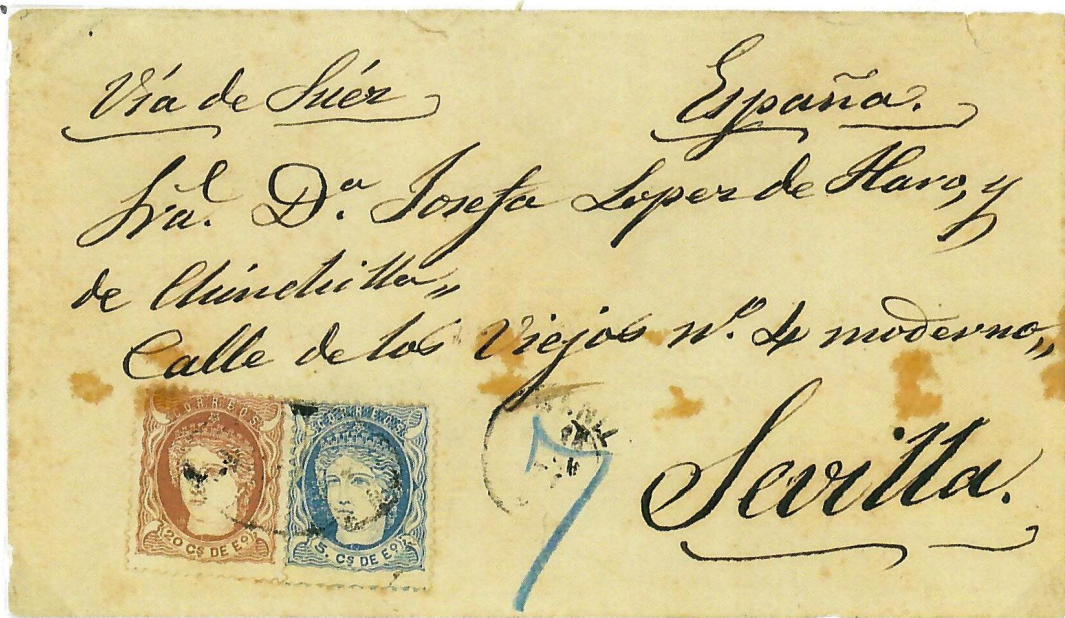 Vía de Súez España.
Sra. Da. Josefa Lopez de Haro, y
de Chinchilla„
Calle de los Viejos nº. 4 moderno„
Sevilla.
7
CORREOS CORREOS
20 Cs DE Eo 5. Cs DE Eo